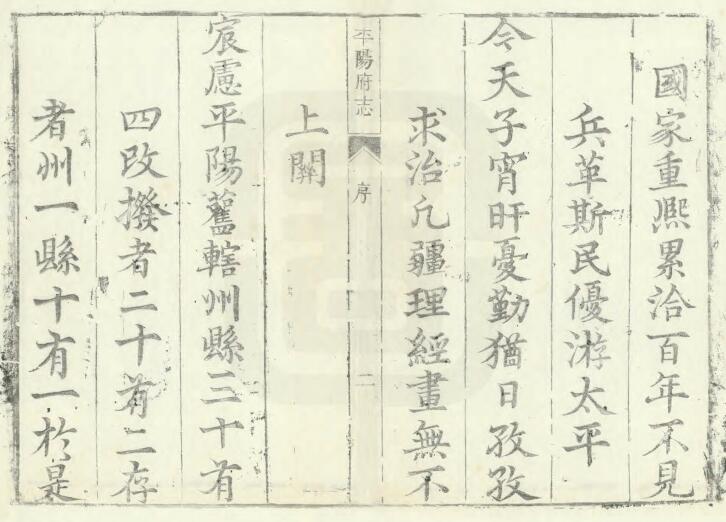 國家重熈累洽百年不見
兵革斯民優游太平
今天子宵旰憂勤猶日孜孜
求治凡疆理經畫無不
上關
平陽府志
序
二
宸慮平陽舊轄州縣三十有
四改撥者二十有二存
者州一縣十有一於是